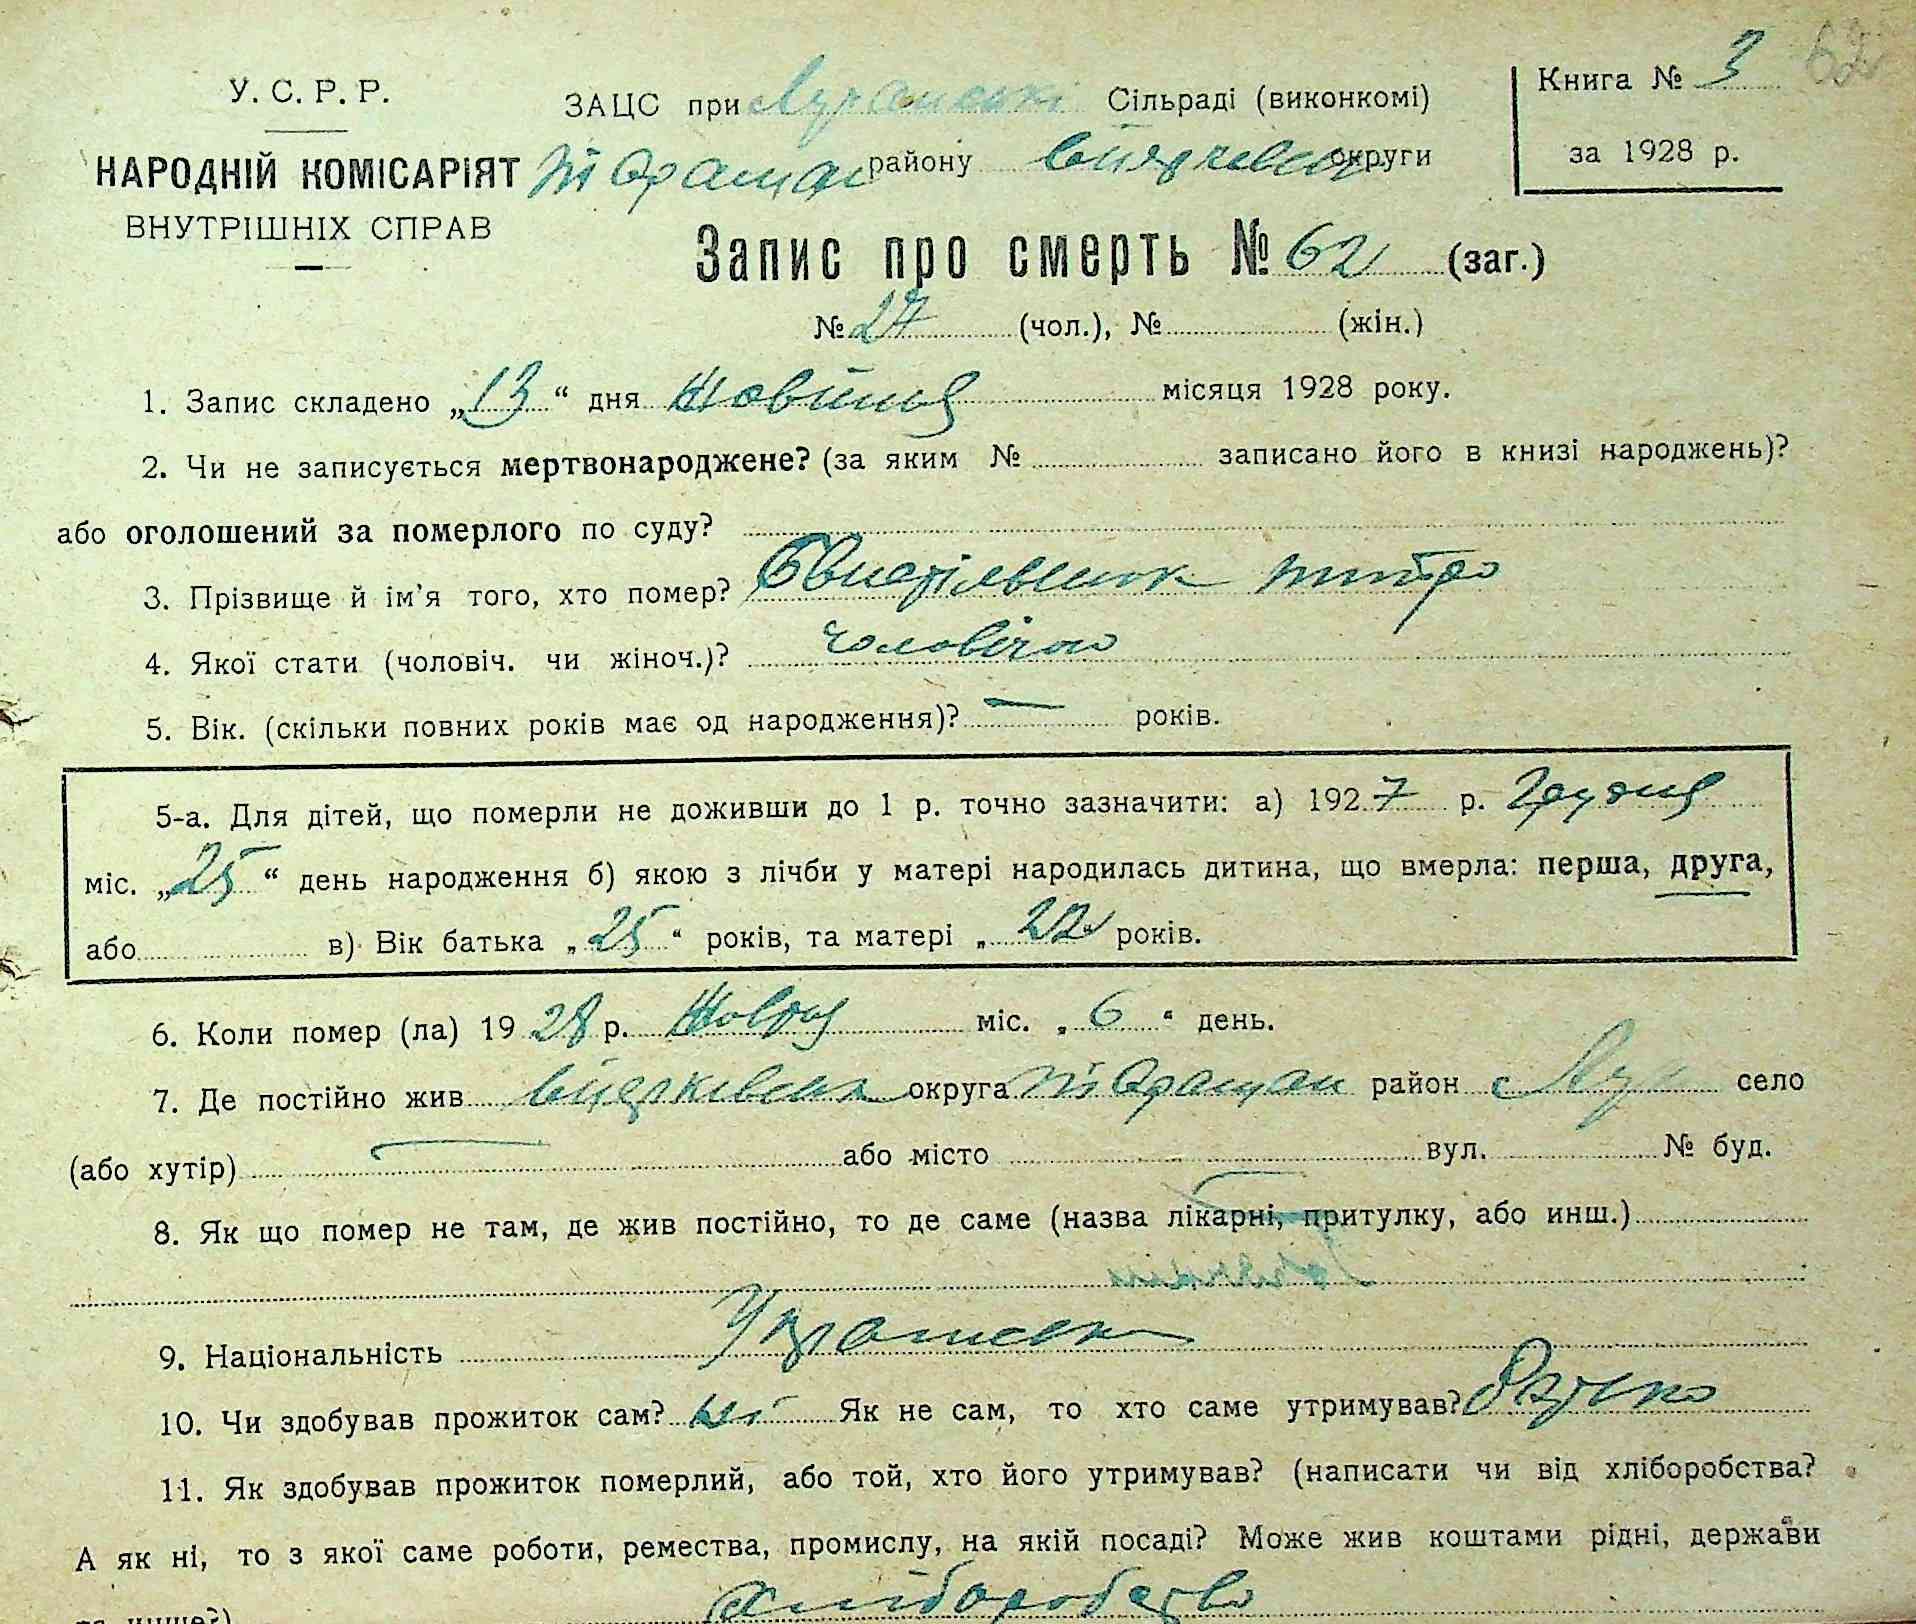 62
У. С. Р. Р.
НАРОДНІЙ КОМІСАРІЯТ
ВНУТРІШНІХ СПРАВ
ЗАЦС при Сільраді (виконкомі)
району округи
Книга № 3
за 1928 р.
Запис про смерть № 62 (заг.)
№ 27 (чол.), № (жін.)
1. Запис складено „13“ дня Жовтня місяця 1928 року.
2. Чи не записується мертвонароджене? (за яким № записано його в книзі народжень)?
або оголошений за померлого по суду?
3. Прізвище й ім'я того, хто помер?
4. Якої стати (чоловіч. чи жіноч.)?
5. Вік. (скільки повних років має од народження)? — років.
5-а. Для дітей, що померли не доживши до 1 р. точно зазначити: а) 1927 р. Грудня
міс. „25“ день народження б) якою з лічби у матері народилась дитина, що вмерла: перша, друга,
або в) Вік батька „25“ років, та матері „22 років.
6. Коли помер (ла) 1928 р. Жовтня міс. „6“ день.
7. Де постійно жив округа район село
(або хутір) — або місто вул. № буд.
8. Як що помер не там, де жив постійно, то де саме (назва лікарні, притулку, або инш.)
9. Національність
10. Чи здобував прожиток сам? ні Як не сам, то хто саме утримував? батько
11. Як здобував прожиток померлий, або той, хто його утримував? (написати чи від хліборобства?
А як ні, то з якої саме роботи, ремества, промислу, на якій посаді? Може жив коштами рідні, держави
хліборобство